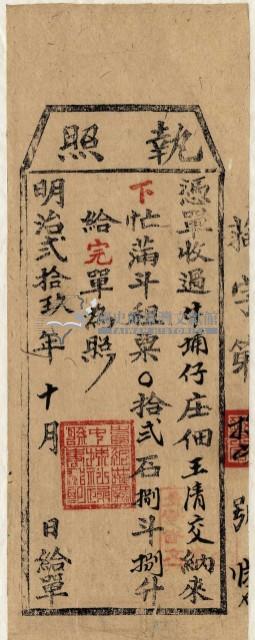 執照
憑單收過牛埔仔庄佃王清交納來
下忙滿斗租粟〇拾貳石捌斗捌升
給完單為照
明治貳拾玖年十月 日給單
拾字第
號